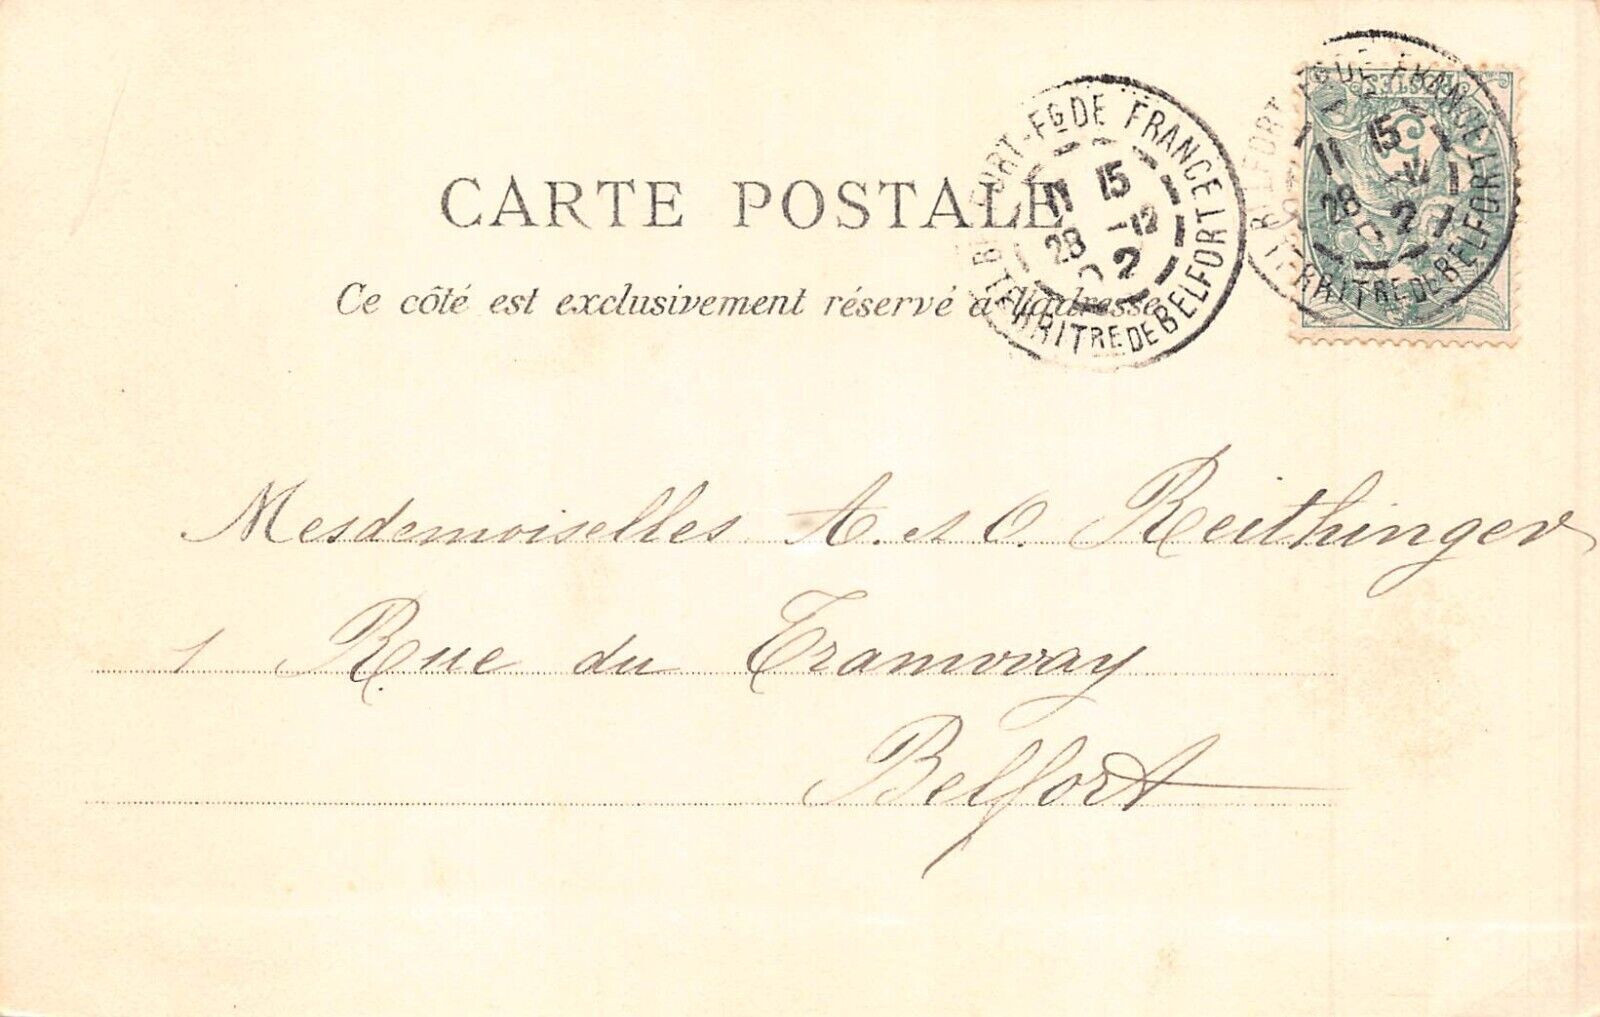 CARTE POSTALE
Ce côté est exclusivement réservé à l'adresse
BELFORT-FG DE FRANCE
11 15
28 -12
02
TERRITRE DE BELFORT
BELFORT FG DE FRANCE
11 15
28 -12
02
TERRITRE DE BELFORT
POSTES
5
Mesdemoiselles A. et O. Reithinger
1 Rue du Tramway
Belfort